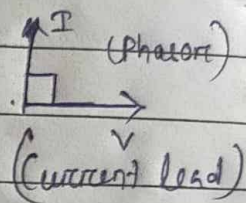 I
(Phasor)
V
(Current lead)